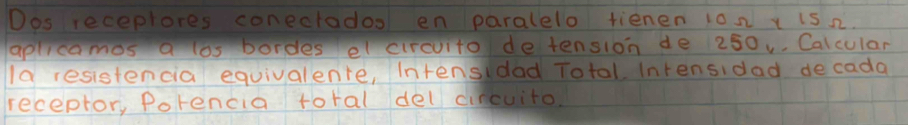 Dos receptores conectados en paralelo tienen 10Ω y 15Ω.
aplicamos a los bordes el circuito de tensión de 250v. Calcular
la resistencia equivalente, Intensidad Total. Intensidad de cada
receptor, Potencia total del circuito.